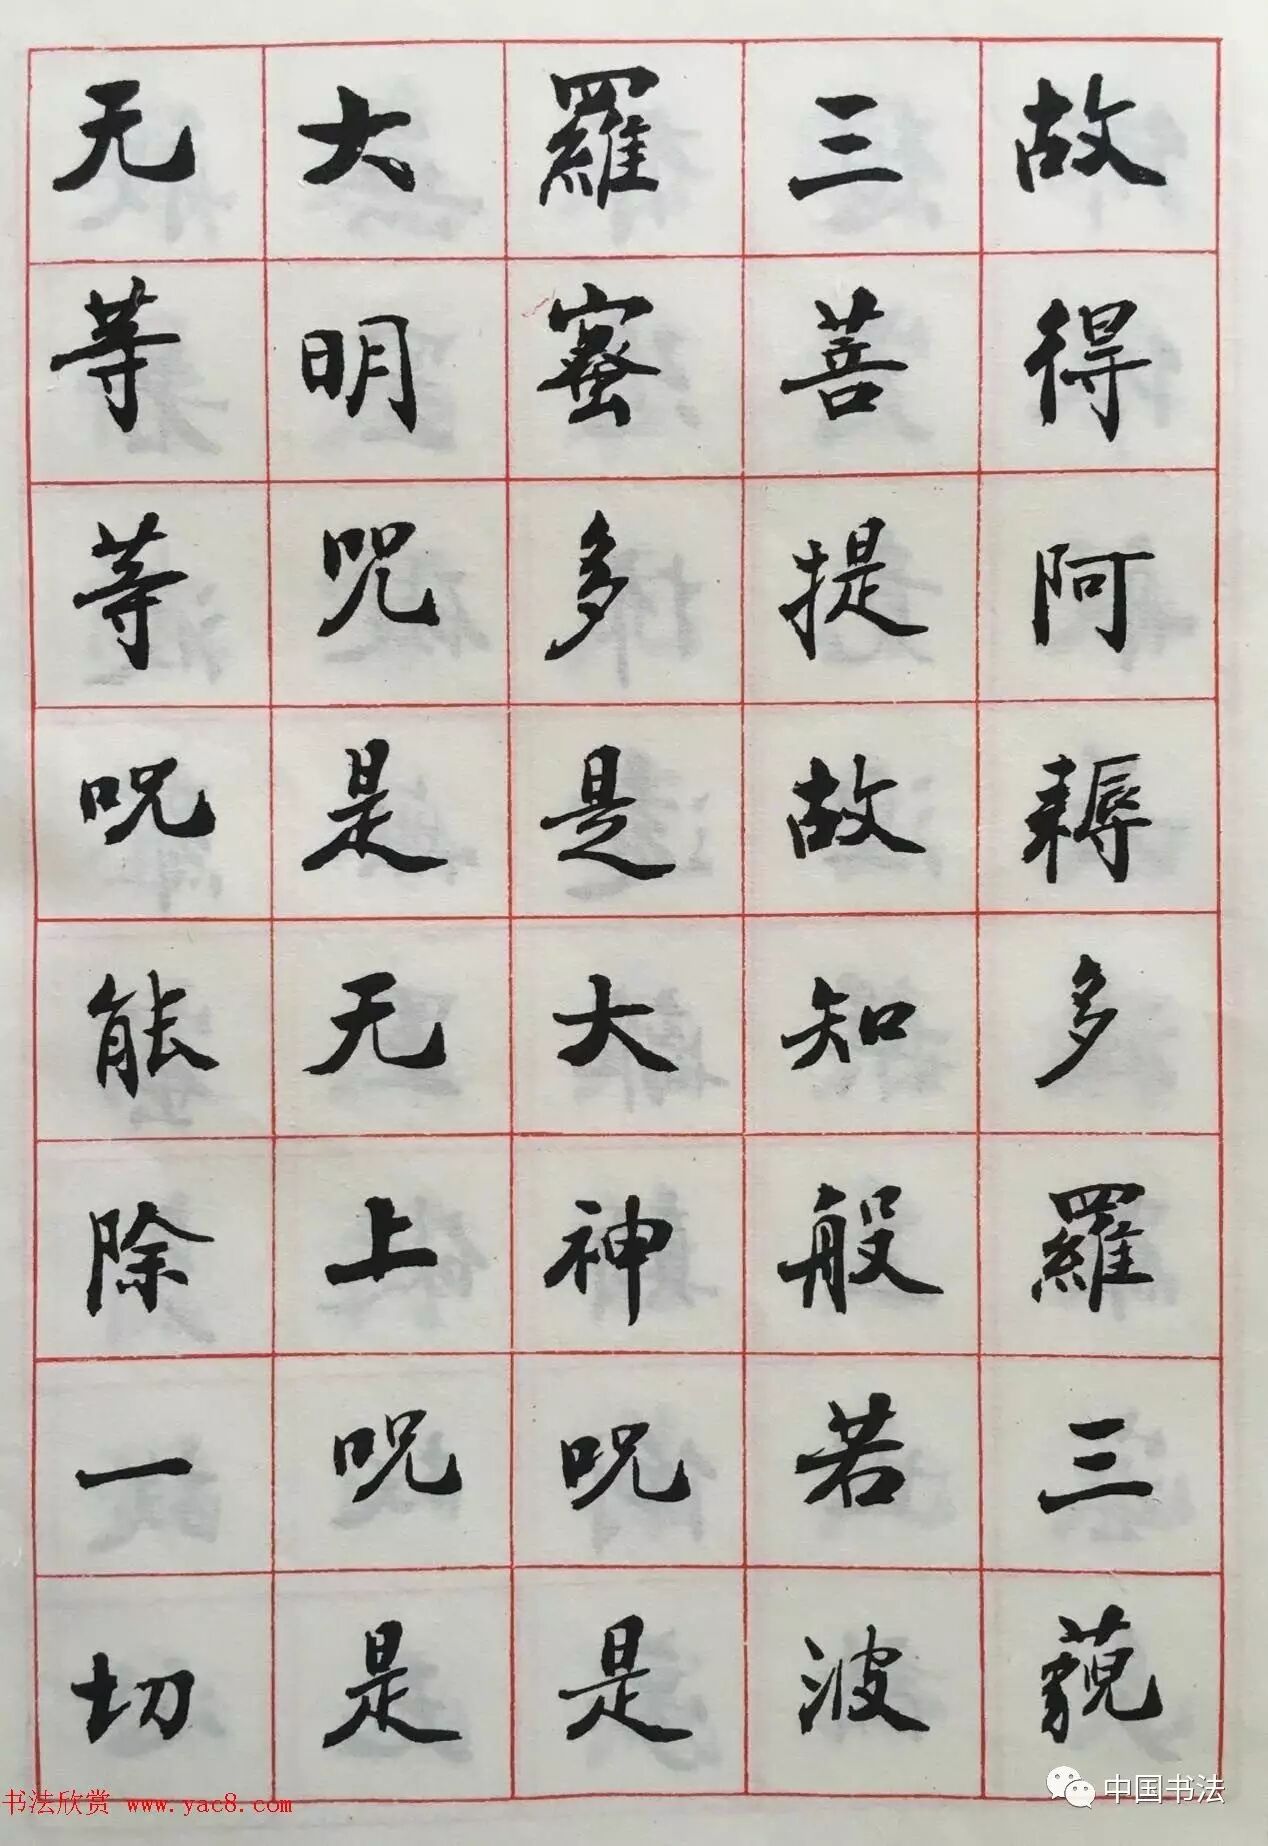 故得阿耨多羅三藐
三菩提故知般若波
羅蜜多是大神咒是
大明咒是无上咒是
无等等咒能除一切
书法欣赏 www.yac8.com
中国书法